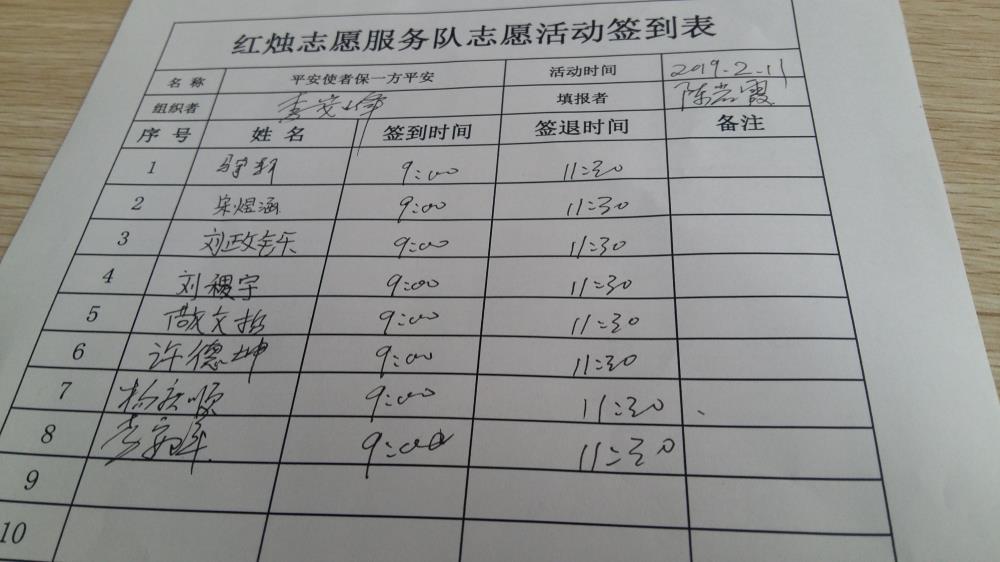 红烛志愿服务队志愿活动签到表
名称 平安使者保一方平安 活动时间 2019.2.11
组织者 填报者 陈岩霞
序号 姓名 签到时间 签退时间 备注
1 9:00 11:30
2 宋煜涵 9:00 11:30
3 9:00 11:30
4 刘稷宇 9:00 11:30
5 9:00 11:30
6 许德坤 9:00 11:30
7 9:00 11:30
8 9:00 11:30
9
10